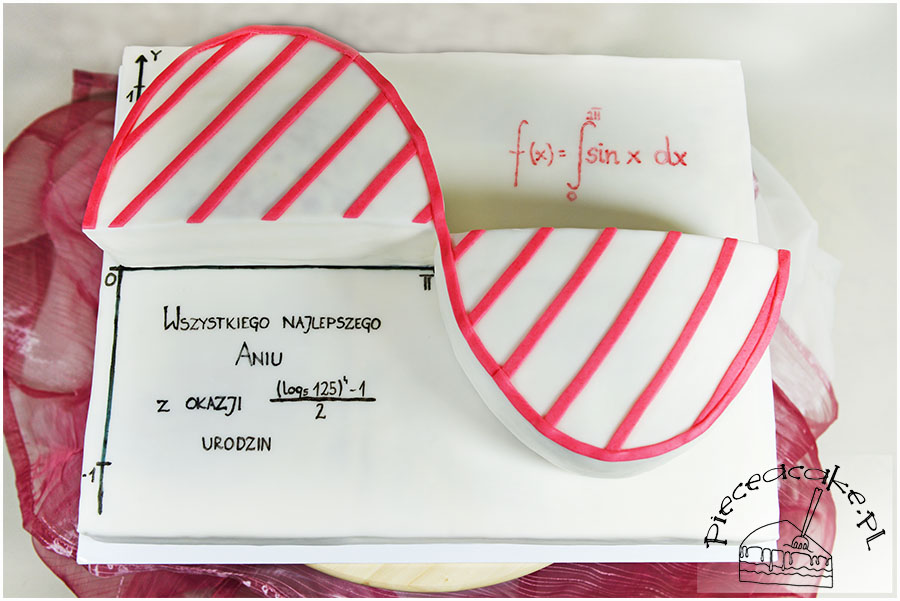 Y
1
2π
f(x) = ∫ sin x dx
0
0
π
WSZYSTKIEGO NAJLEPSZEGO
ANIU
Z OKAZJI (log₅ 125)⁴ - 1
2
URODZIN
-1
Pieceacake.PL